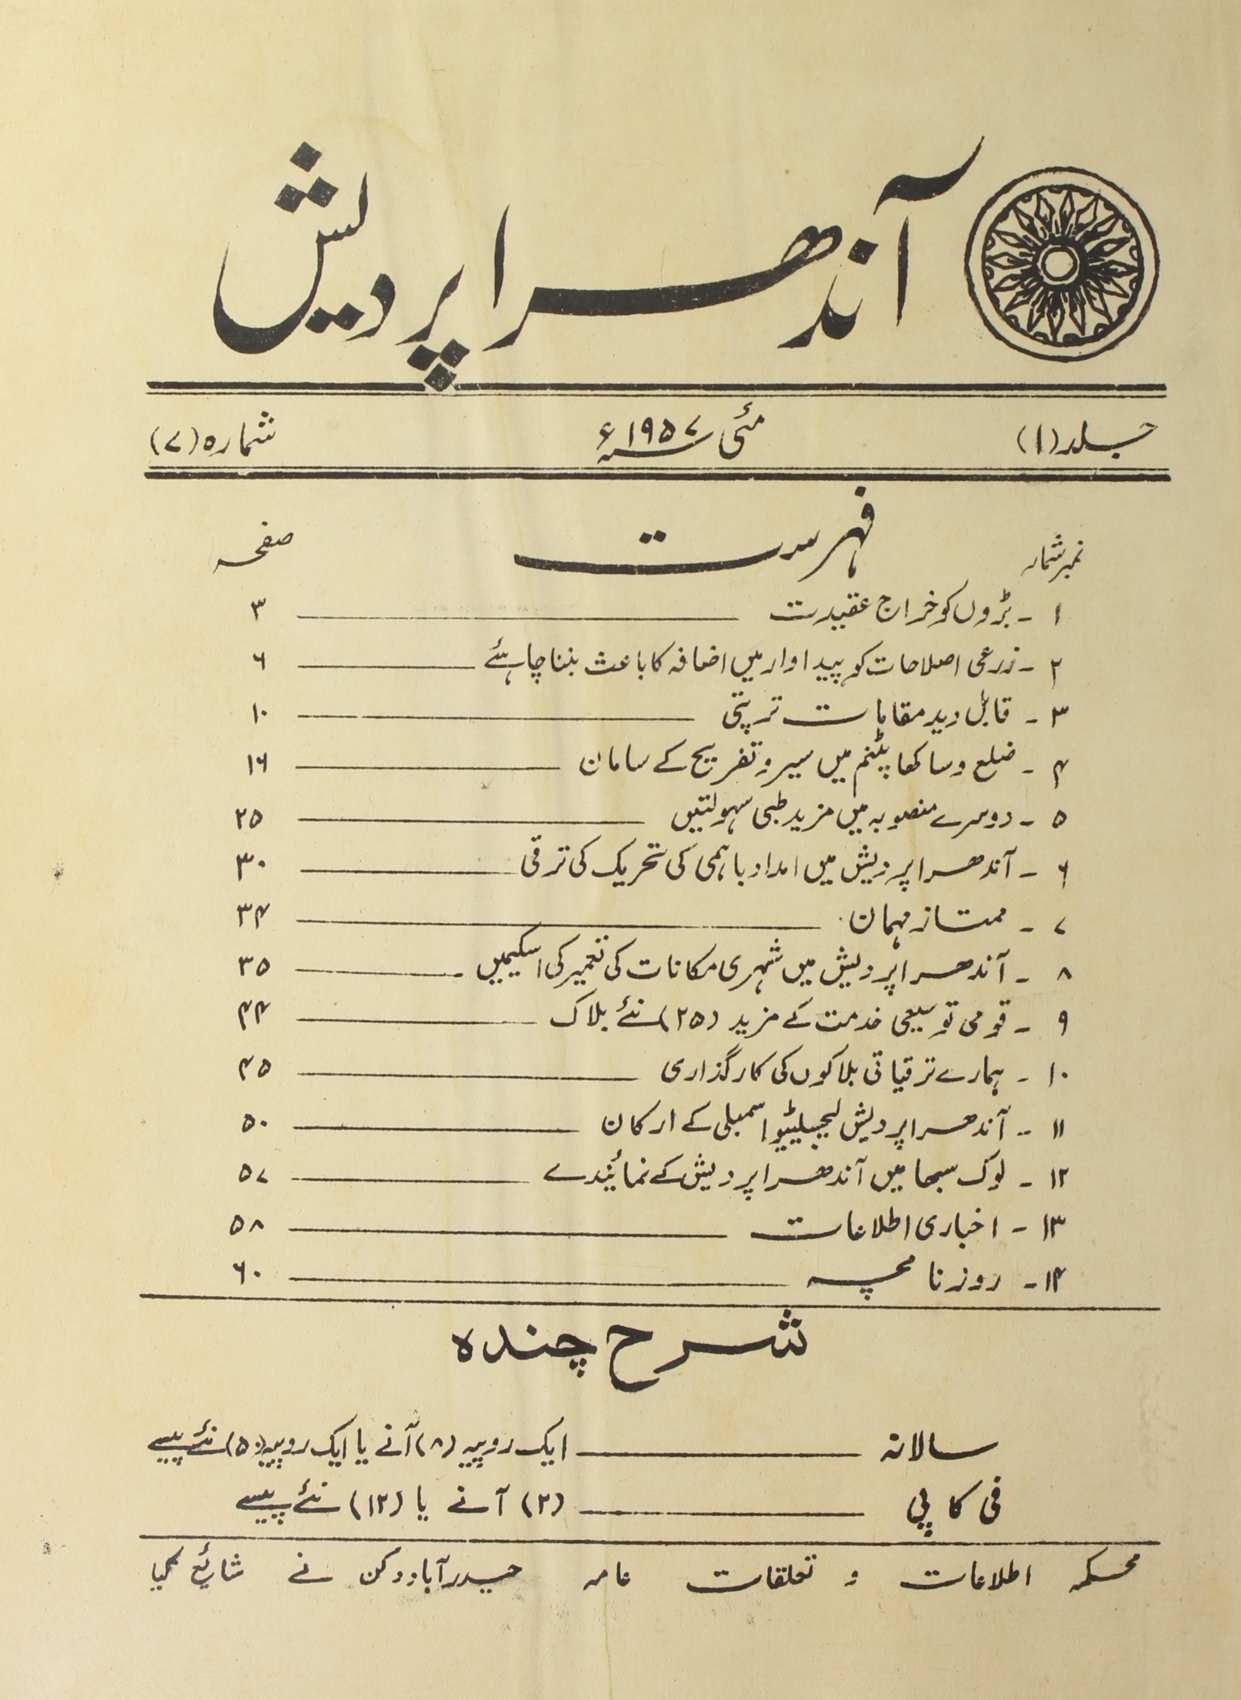 آندھرا پردیش
جلد (۱) مئی ۱۹۵۷ء شمارہ (۷)
فہرست
نمبر شمار صفحہ
۱ - بڑوں کو خراج عقیدت ۳
۲ - زرعی اصلاحات کو پیداوار میں اضافہ کا باعث بننا چاہئے ۶
۳ - قابل دید مقامات ترپتی ۱۰
۴ - ضلع وساکھاپٹنم میں سیر و تفریح کے سامان ۱۶
۵ - دوسرے منصوبہ میں مزید طبی سہولتیں ۲۵
۶ - آندھرا پردیش میں امداد باہمی کی تحریک کی ترقی ۳۰
۷ - ممتاز مہمان ۳۴
۸ - آندھرا پردیش میں شہری مکانات کی تعمیر کی اسکیمیں ۳۵
۹ - قومی توسیعی خدمت کے مزید (۲۵) نئے بلاک ۴۴
۱۰ - ہمارے ترقیاتی بلاکوں کی کارگذاری ۴۵
۱۱ - آندھرا پردیش لیجسلیٹیو اسمبلی کے ارکان ۵۰
۱۲ - لوک سبھا میں آندھرا پردیش کے نمائندے ۵۷
۱۳ - اخباری اطلاعات ۵۸
۱۴ - روزنامچہ ۶۰
شرح چندہ
سالانہ ایک روپیہ (۸) آنے یا ایک روپیہ (۵۰) نئے پیسے
فی کاپی (۲) آنے یا (۱۲) نئے پیسے
محکمہ اطلاعات و تعلقات عامہ حیدرآباد دکن نے شائع کیا